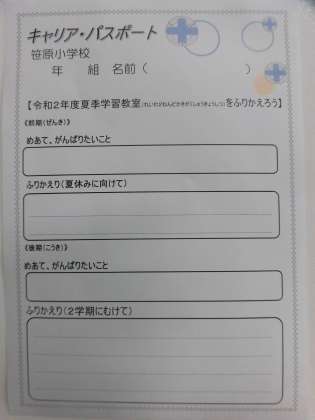 キャリア・パスポート
笹原小学校
年 組 名前( )
【令和2年度夏季学習教室(れいわ2ねんどかきがくしゅうきょうしつ)をふりかえろう】
《前期(ぜんき)》
めあて、がんばりたいこと
ふりかえり(夏休みに向けて)
《後期(こうき)》
めあて、がんばりたいこと
ふりかえり(2学期にむけて)